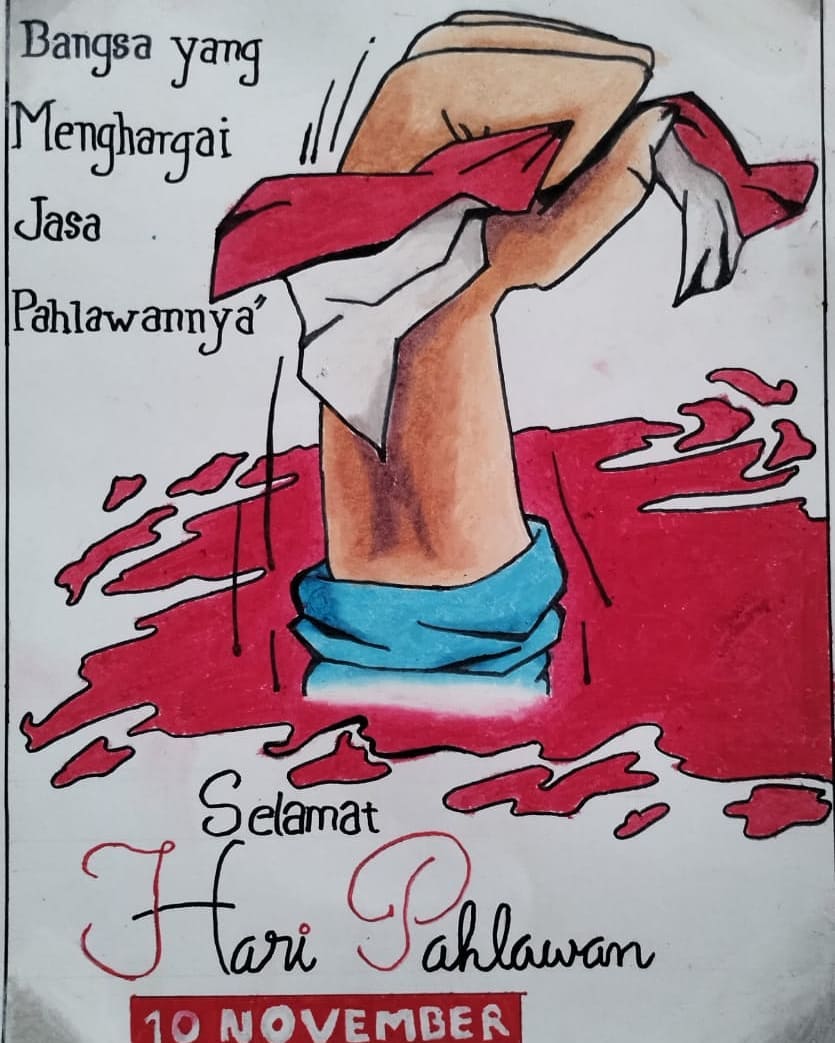 Bangsa yang
Menghargai
Jasa
Pahlawannya"
Selamat
Hari Pahlawan
10 NOVEMBER